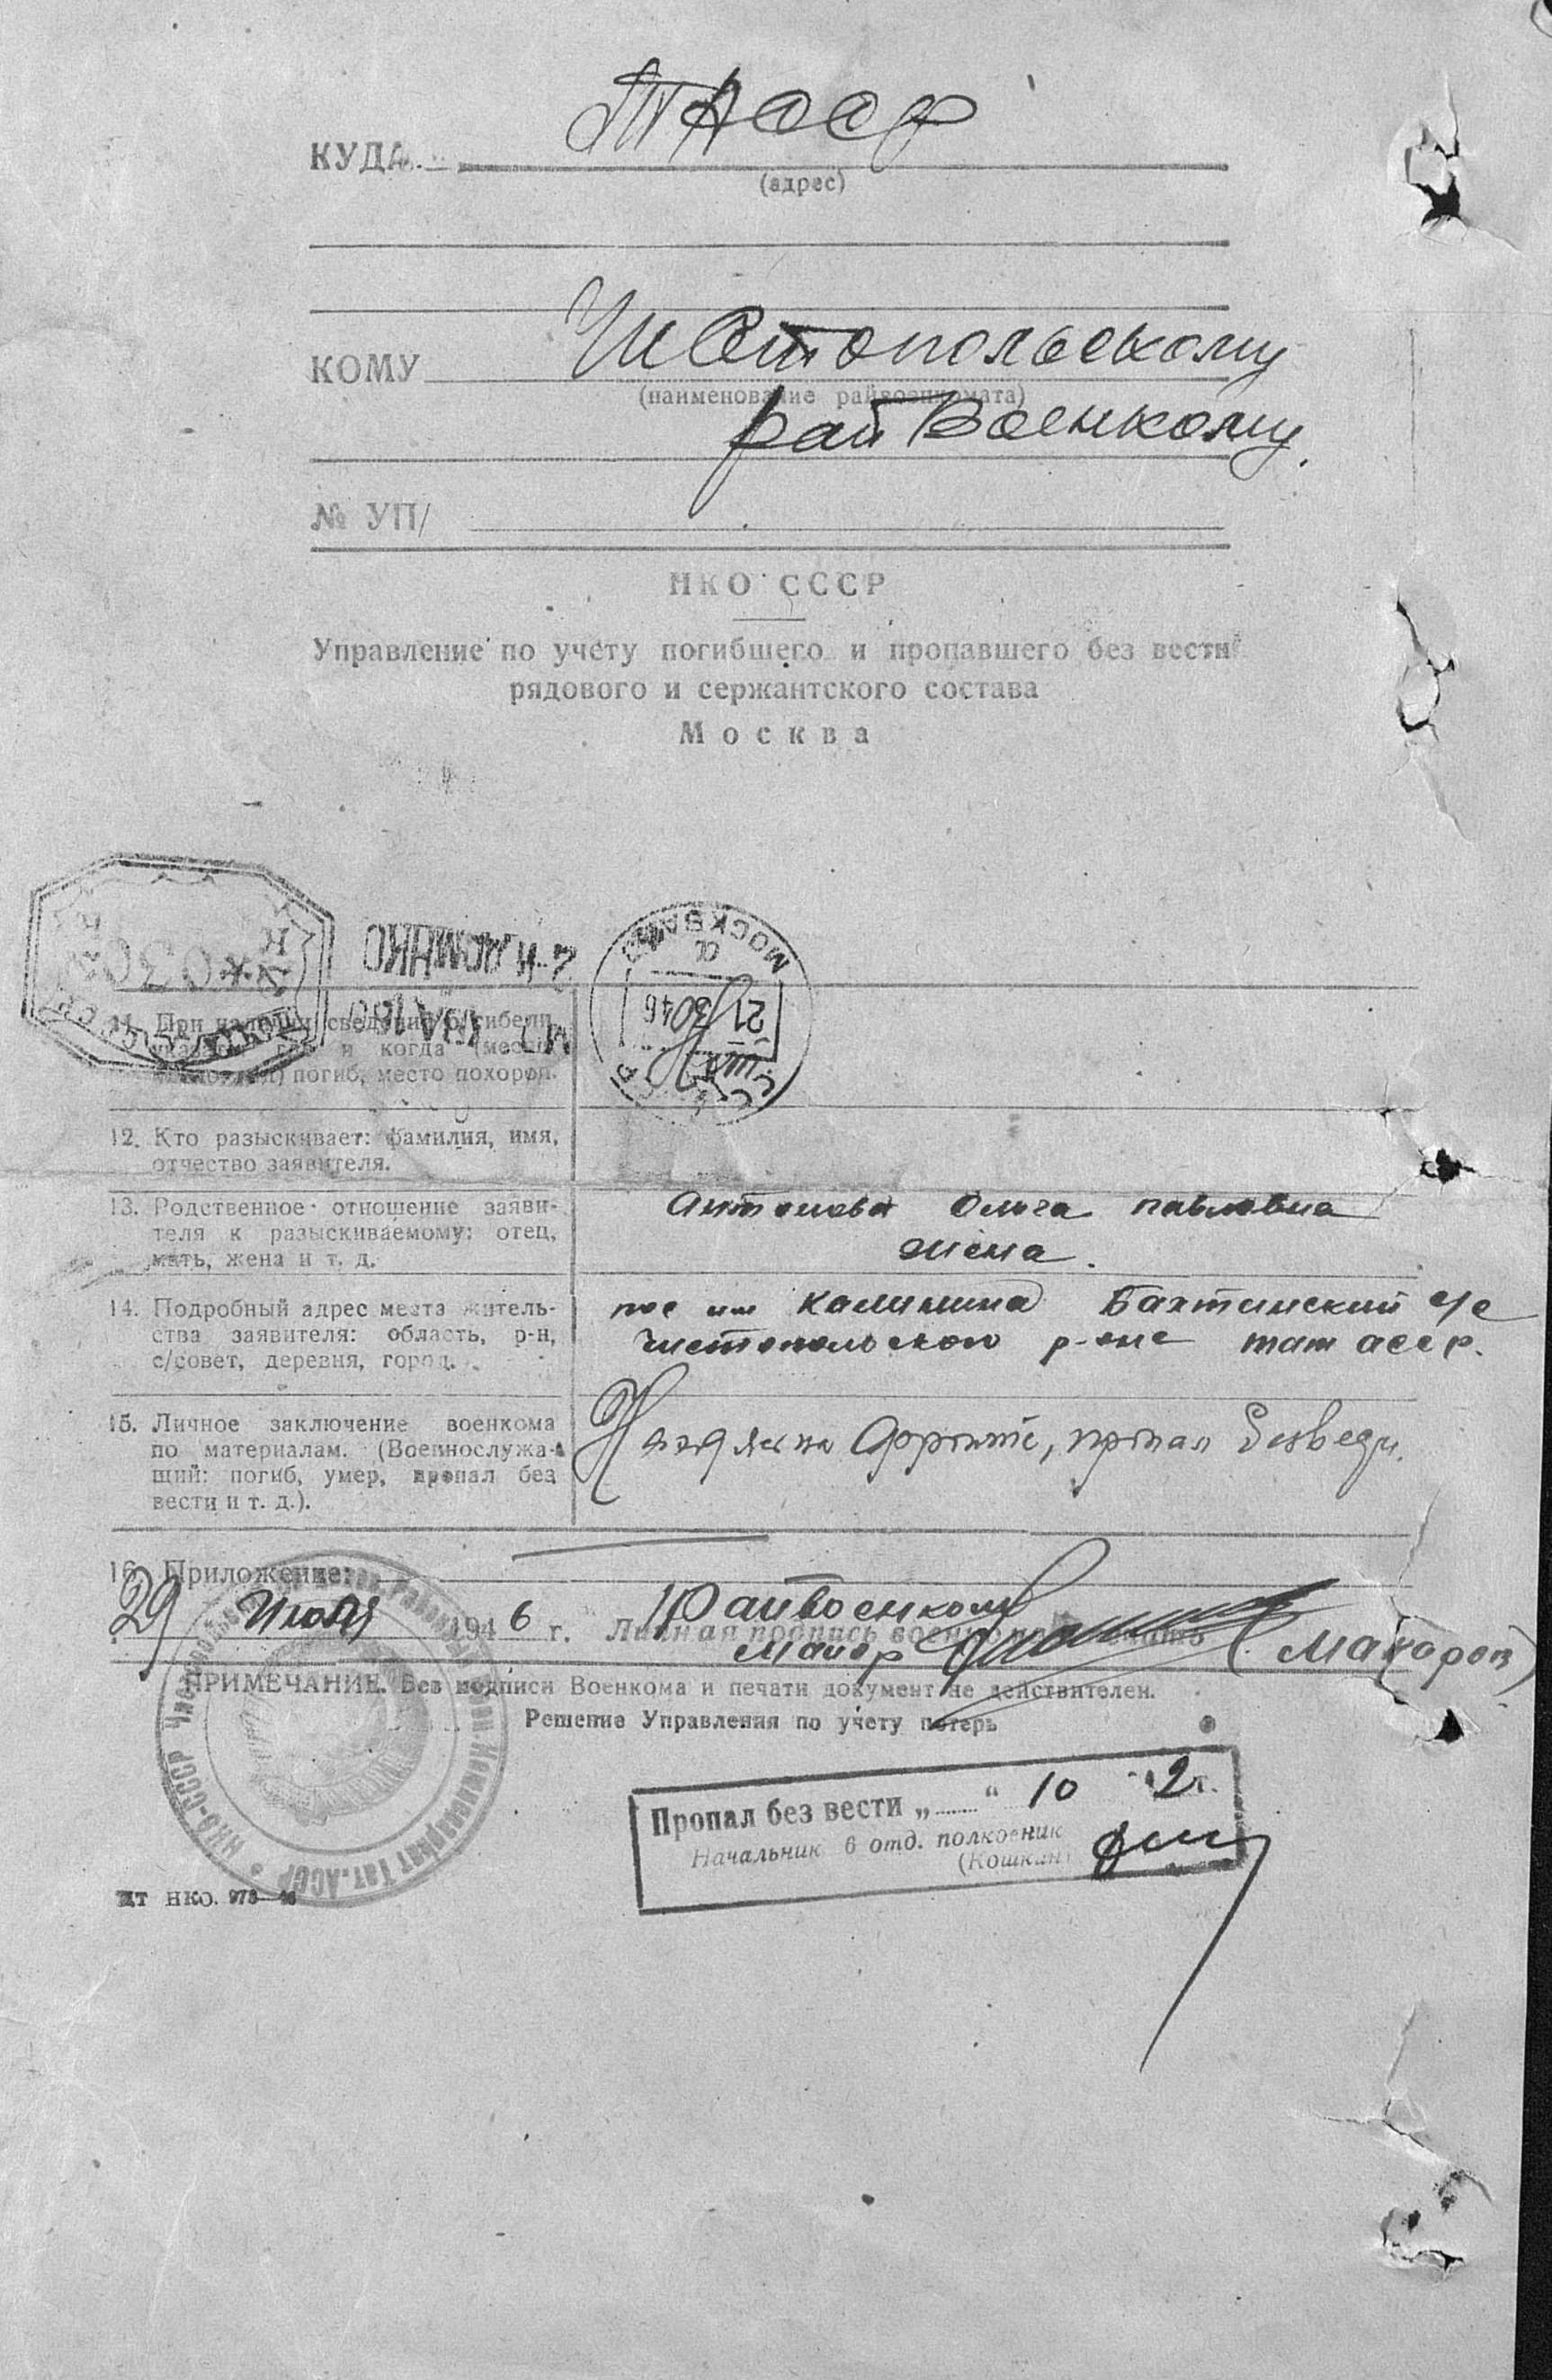 ТАССР
КУДА
(адрес)
Чистопольскому
КОМУ
(наименование райвоенкомата)
рай Военкому.
№ УП/
НКО СССР
Управление по учету погибшего и пропавшего без вести
рядового и сержантского состава
Москва
МОСКВА
21 3 46
11. При наличии сведений о гибели
указать где и когда (месяц
погиб, место похорон.
12. Кто разыскивает: фамилия, имя,
отчество заявителя.
13. Родственное отношение заяви-
теля к разыскиваемому: отец,
мать, жена и т. д.
Антонова Ольга павловна
жена.
14. Подробный адрес места житель-
ства заявителя: область, р-н,
с/совет, деревня, город.
пос им Калинина Бахтинский с/с
Чистопольского р-оне тат асср.
15. Личное заключение военкома
по материалам. (Военнослужа-
щий: погиб, умер, пропал без
вести и т. д.).
Находясь на Фронте, пропал безвести.
16. Приложение:
29 Июля 1946 г. Личная подпись военкома
Райвоенком
Майор (Макаров)
ПРИМЕЧАНИЕ. Без подписи Военкома и печати документ не действителен.
Решение Управления по учету потерь
НКО-СССР Чистопольский Районный Воен. Комиссариат Тат.АССР
Пропал без вести „ “ 10 2г.
Начальник 6 отд. полковник
(Кошкин)
НКО. 978—46